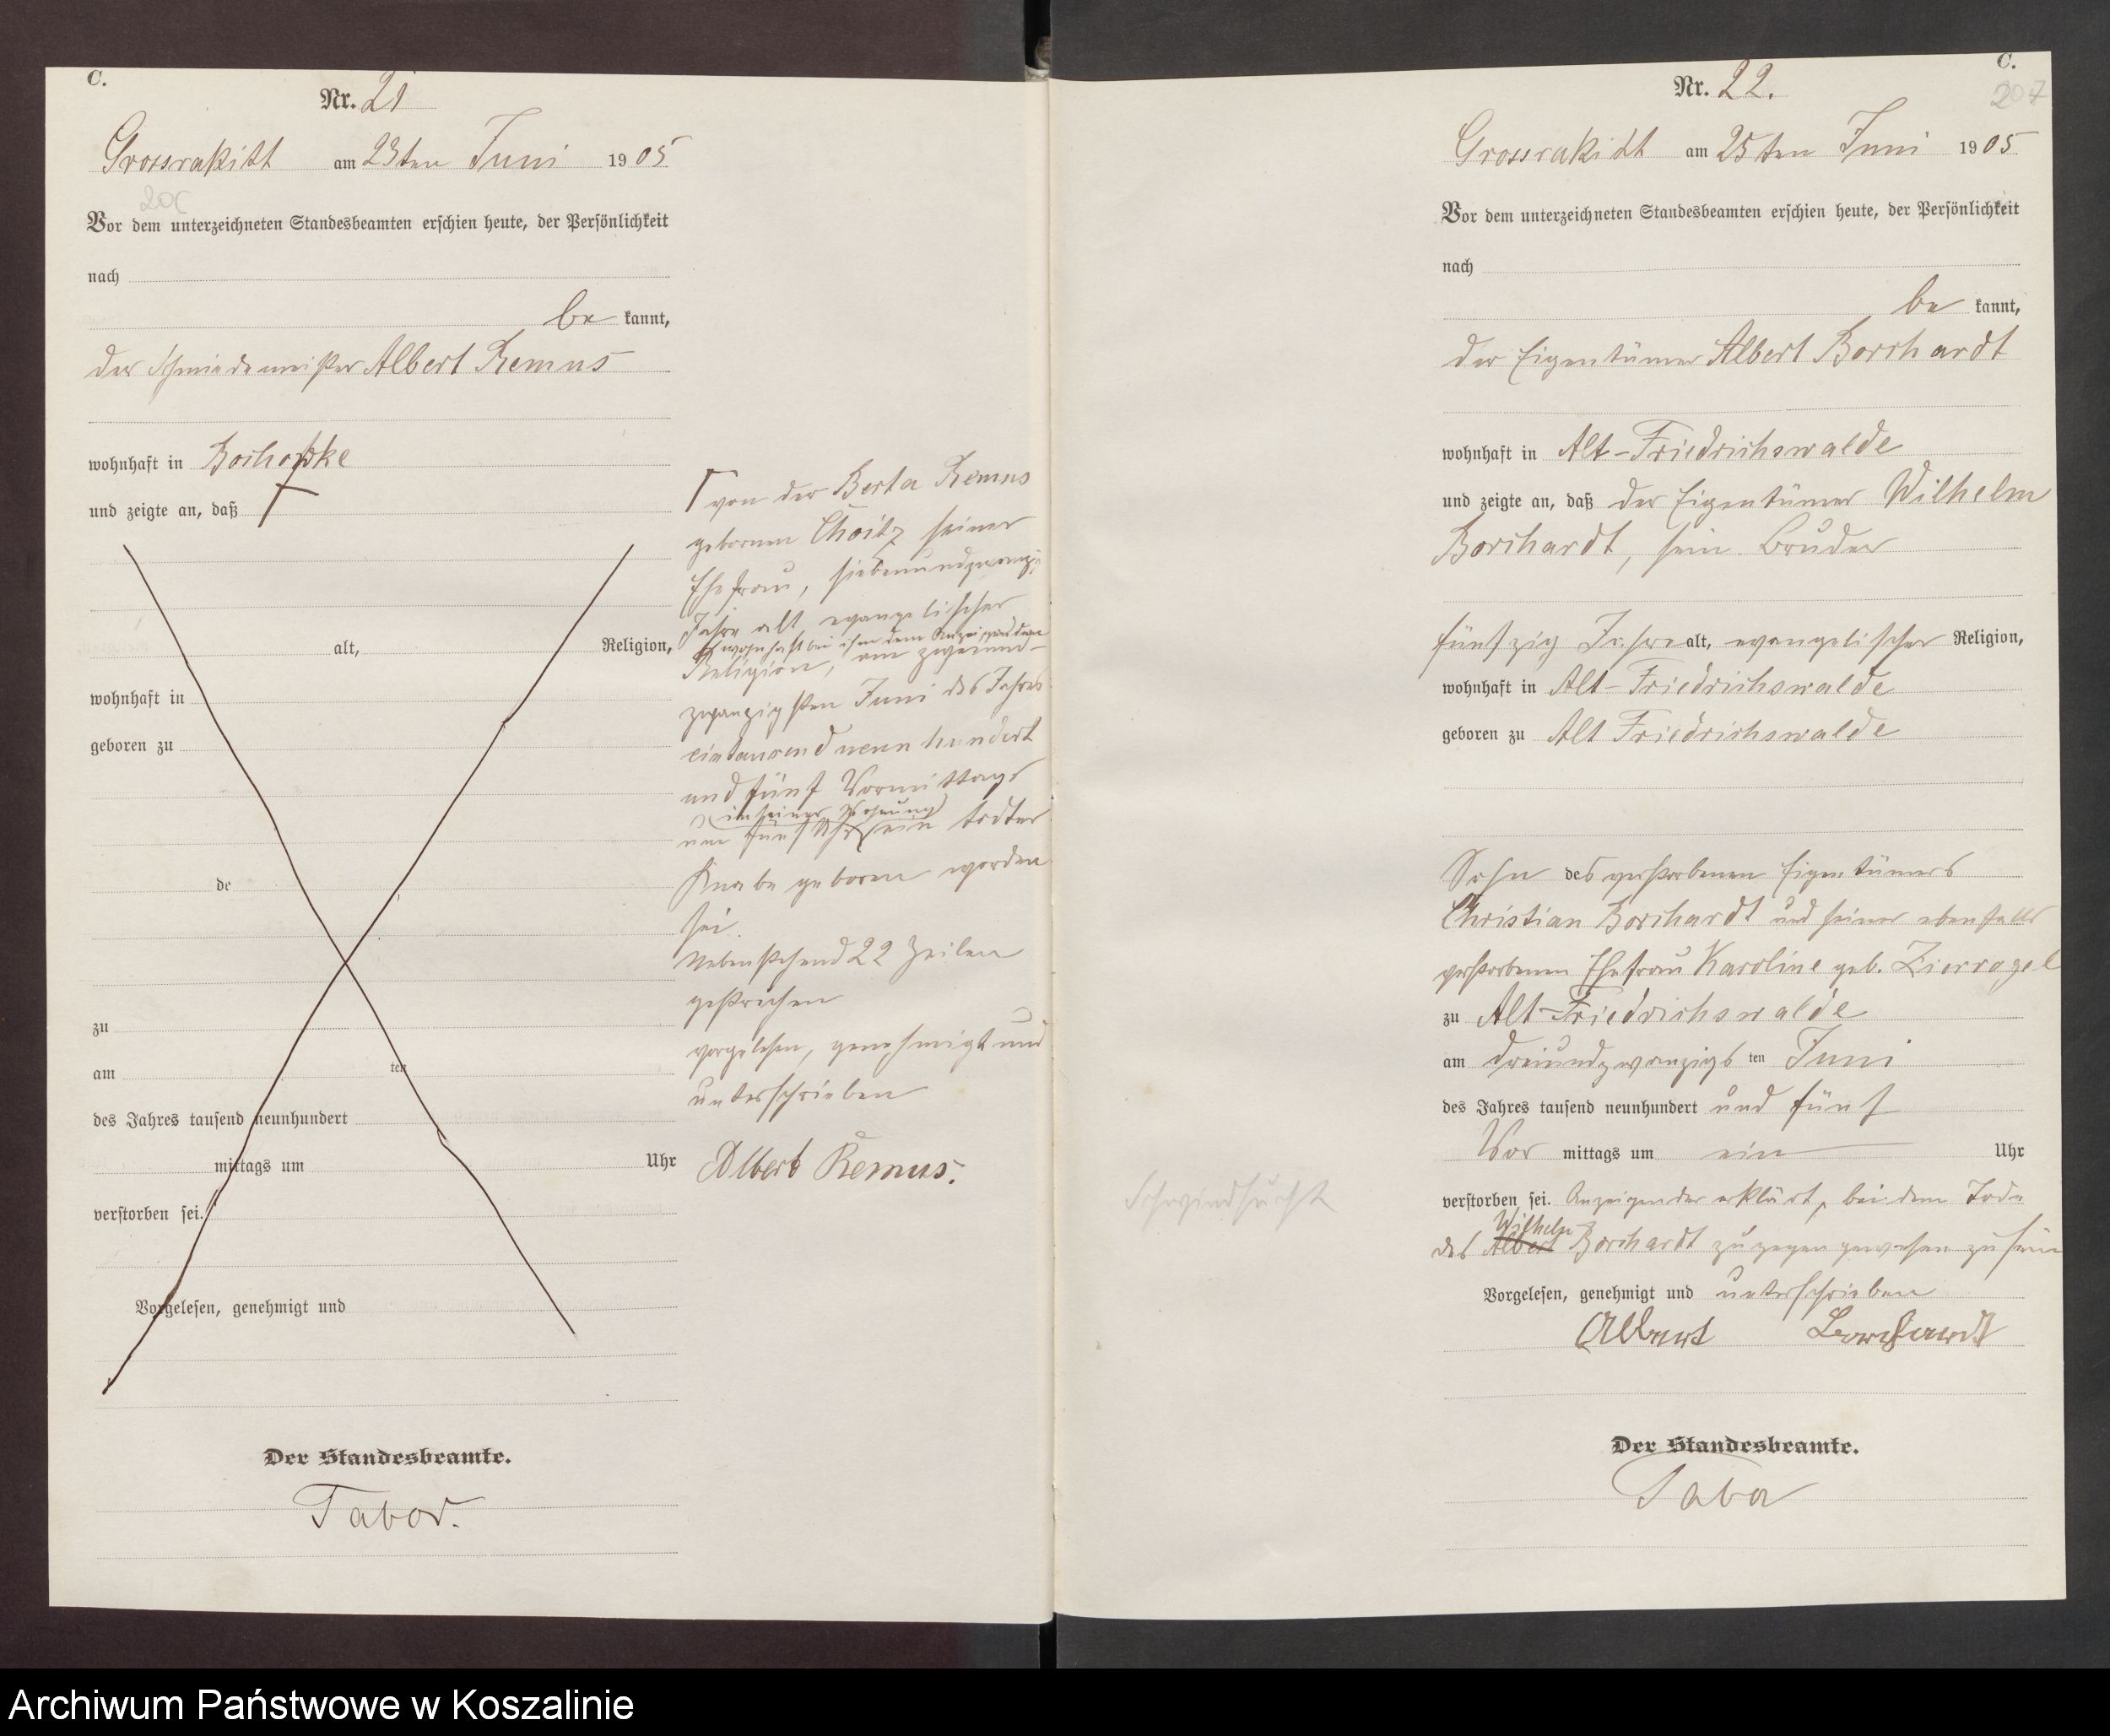 C.
Nr. 21
Grossrakitt am 23ten Juni 1905
Vor dem unterzeichneten Standesbeamten erschien heute, der Persönlichkeit
nach
be kannt,
der Schmiedemeister Albert Remus
wohnhaft in
und zeigte an, daß
alt, Religion,
wohnhaft in
geboren zu
de
zu
am ten
des Jahres tausend neunhundert
mittags um Uhr
verstorben sei.
Vorgelesen, genehmigt und
Der Standesbeamte.
Tabor.
von der Berta Remus
gebornen Choitz seiner
Ehefrau, siebenundzwanzig
Jahre alt, evangelischer
wohnhaft bei ihm dem Anzeigenden
Religion, am zweiund-
zwanzigsten Juni des Jahres
eintausend neun hundert
und fünf Vormittags
in seiner Wohnung
um fünf Uhr ein todter
Knabe geboren worden
sei.
Nebenstehend 22 Zeilen
gestrichen
vorgelesen, genehmigt und
unterschrieben
Albert Remus.
C.
207
Nr. 22.
Grossrakitt am 25ten Juni 1905
Vor dem unterzeichneten Standesbeamten erschien heute, der Persönlichkeit
nach
be kannt,
der Eigentümer Albert Borchardt
wohnhaft in Alt-Friedrichswalde
und zeigte an, daß der Eigentümer Wilhelm
Borchardt, sein Bruder
fünfzig Jahre alt, evangelischer Religion,
wohnhaft in Alt-Friedrichswalde
geboren zu Alt Friedrichswalde
Sohn des verstorbenen Eigentümers
Christian Borchardt und seiner ebenfalls
verstorbenen Ehefrau Karoline geb. Ziervogel
zu Alt-Friedrichswalde
am dreiundzwanzigsten Juni
des Jahres tausend neunhundert und fünf
Vor mittags um ein Uhr
verstorben sei. Anzeigender erklärt, bei dem Tode
Wilhelm
des Albert Borchardt zugegen gewesen zu sein
Vorgelesen, genehmigt und unterschrieben
Albert Borchardt
Schwindsucht
Der Standesbeamte.
Tabor
Archiwum Państwowe w Koszalinie